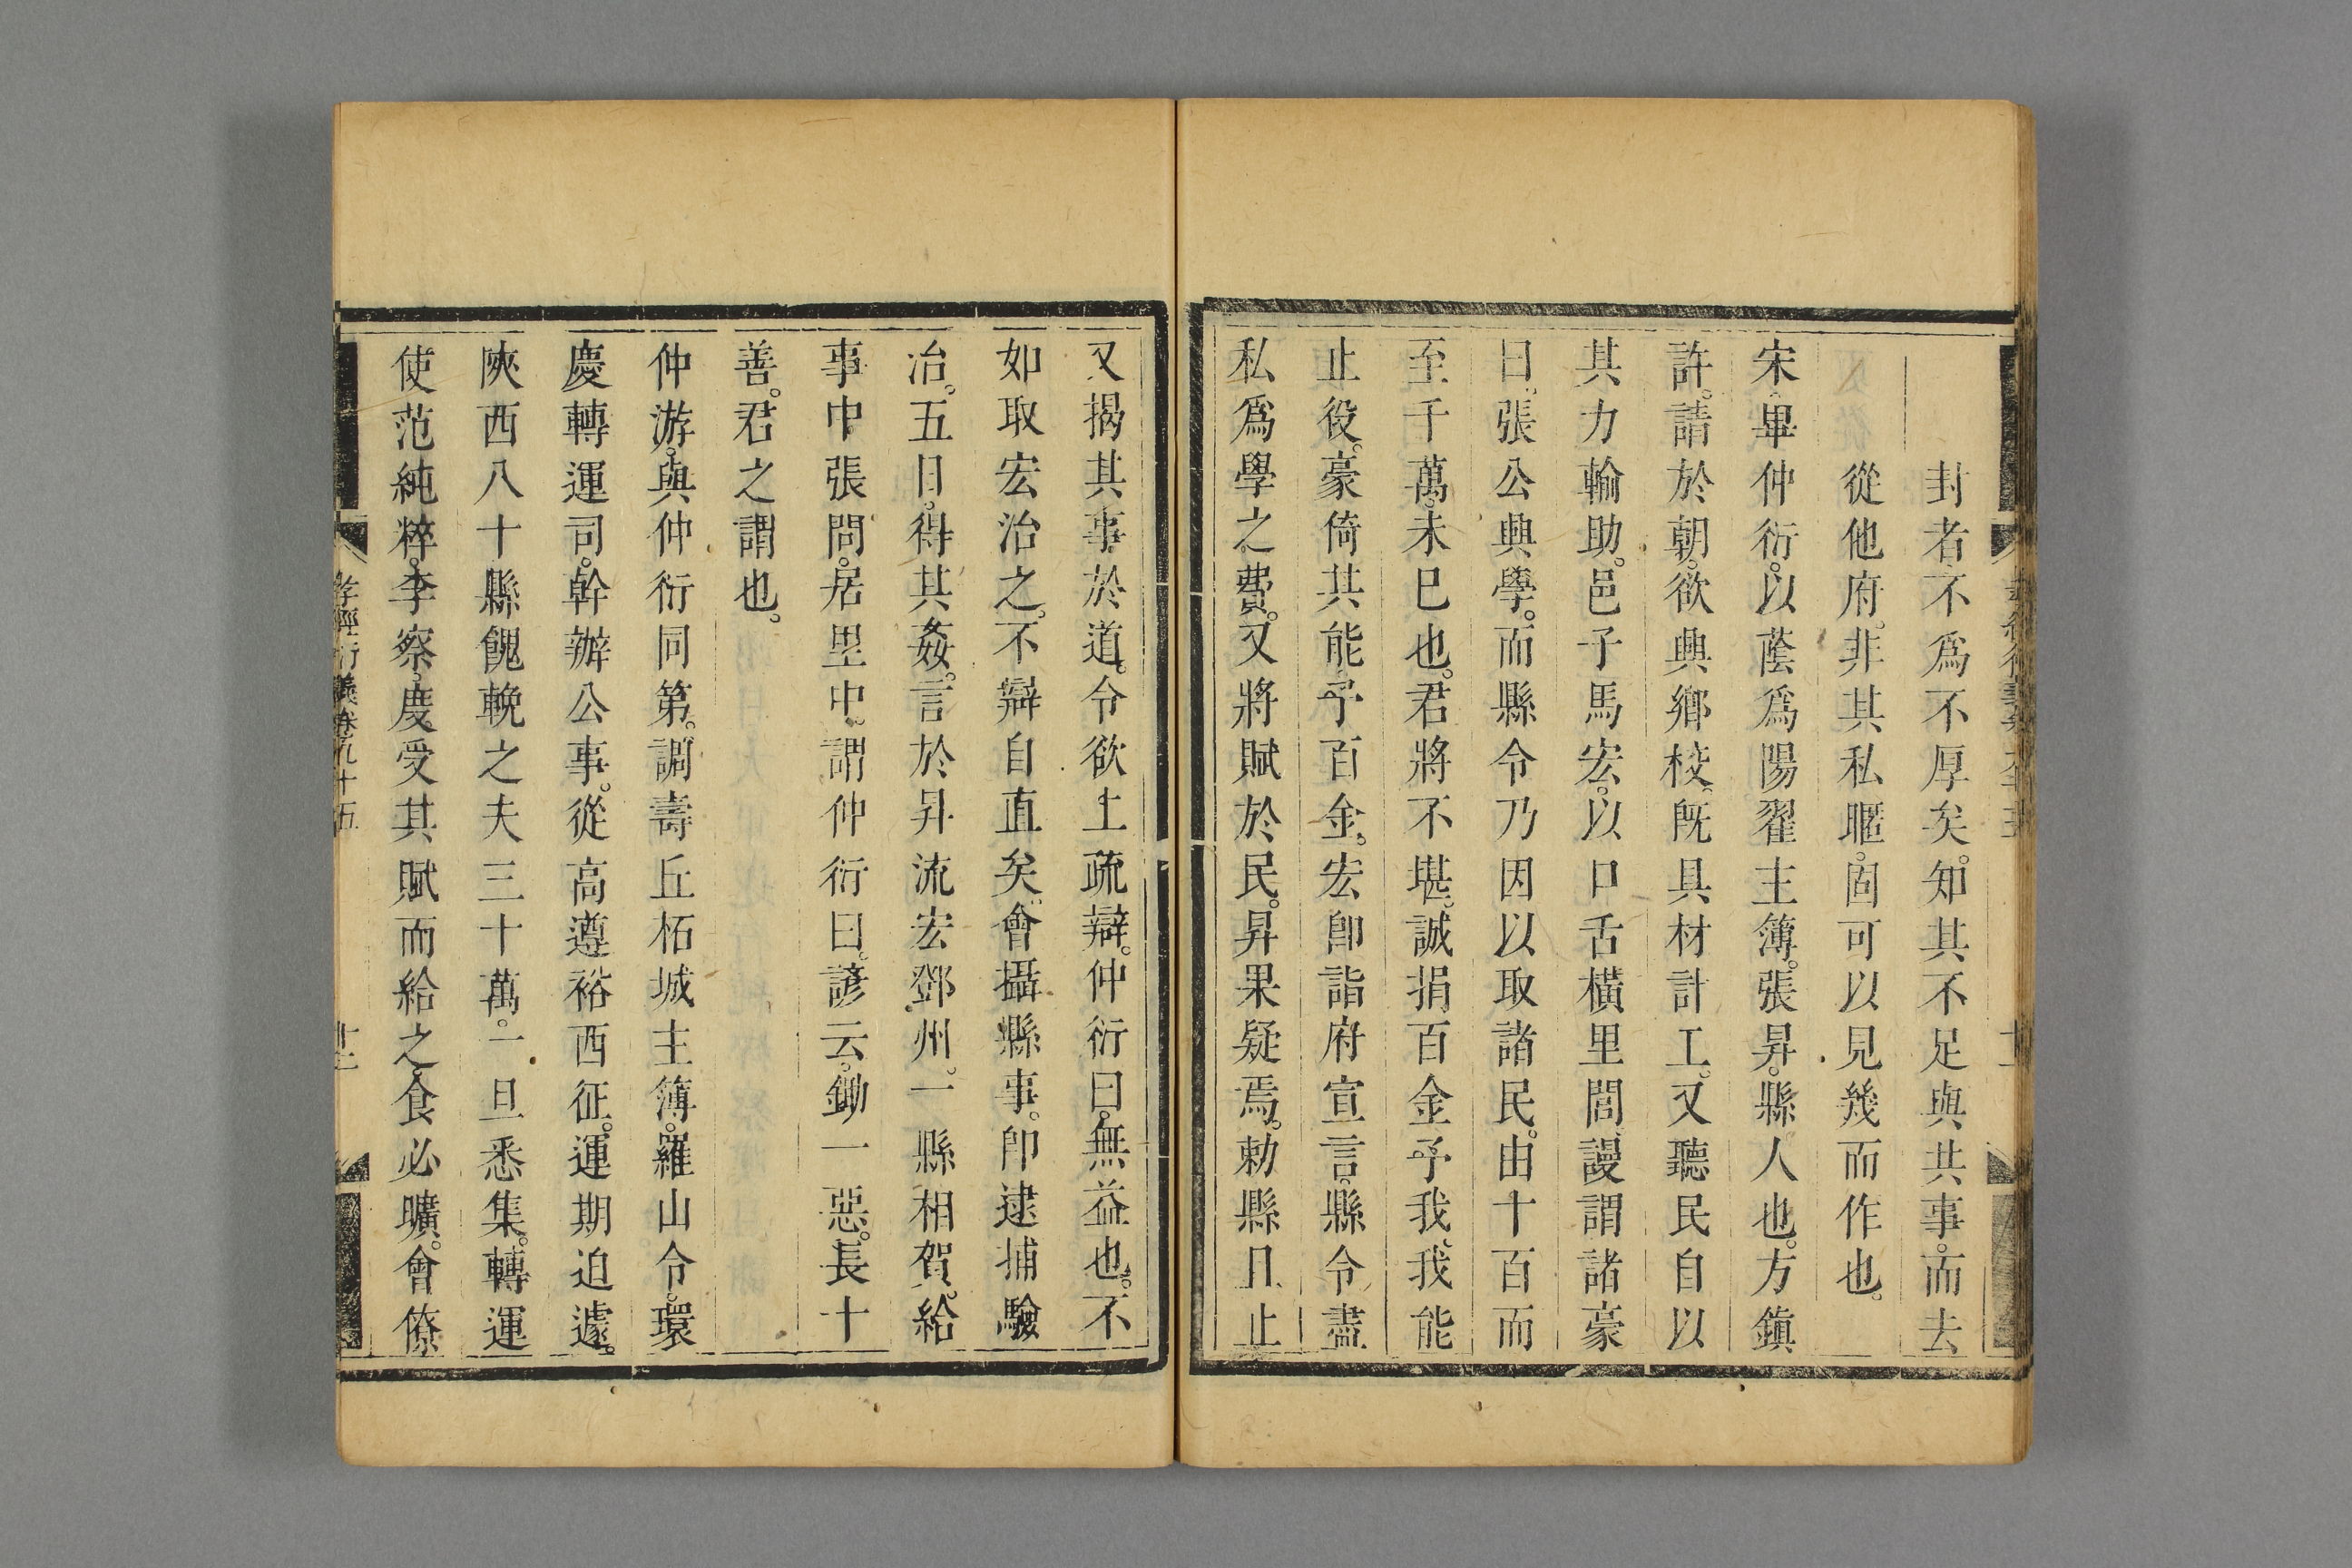 封者不爲不厚矣。知其不足與共事。而去
從他府。非其私暱。固可以見幾而作也。
宋畢仲衍。以蔭爲陽翟主簿。張昇。縣人也。方鎮
許。請於朝。欲興鄉校。既具材計工。又聽民自以
其力輸助。邑子馬宏。以口舌橫里閭。謾謂諸豪
曰。張公興學。而縣令乃因以取諸民。由十百而
至千萬。未巳也。君將不堪。誠捐百金予我。我能
止役。豪倚其能。予百金。宏卽詣府宣言。縣令盡
私爲學之費。又將賦於民。昇果疑焉。勅縣且止
又揭其事於道。令欲上疏辯。仲衍曰。無益也。不
如取宏治之。不辯自直矣。會攝縣事。卽逮捕驗
治。五日。得其姦。言於昇流宏鄧州。一縣相賀。給
事中張問。居里中。謂仲衍曰。諺云。鋤一惡。長十
善。君之謂也。
仲游。與仲衍同第。調壽丘柘城主簿。羅山令。環
慶轉運司。幹辦公事。從高遵裕西征。運期迫遽。
陝西八十縣餽輓之夫三十萬。一旦悉集。轉運
使范純粹。李察。度受其賦而給之。食必曠。會僚
孝經衍義卷九十五
十二